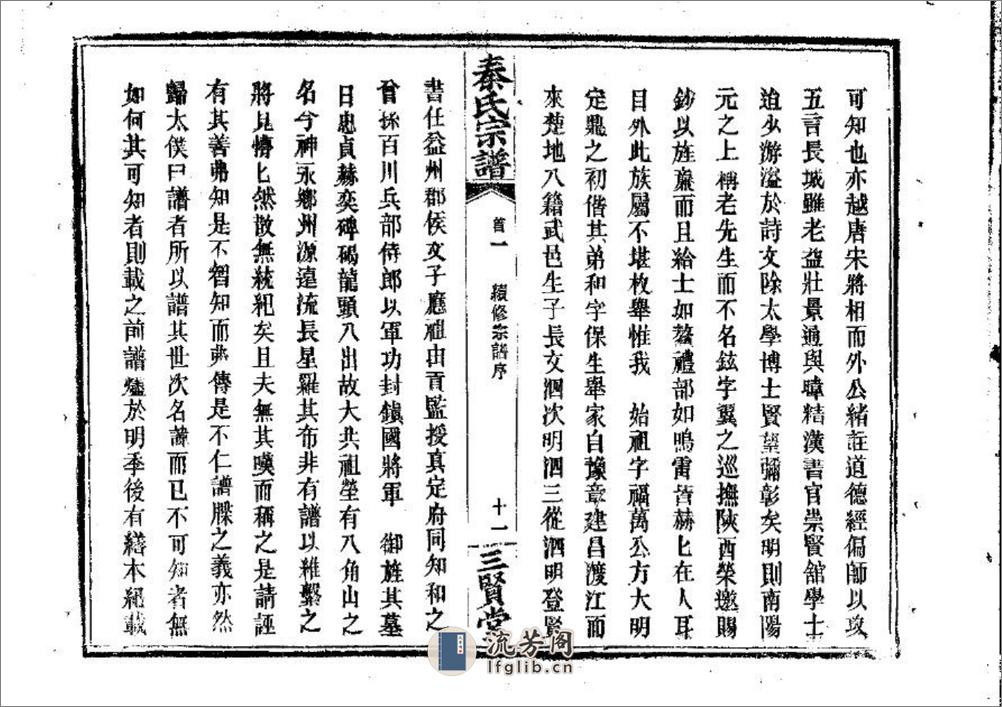 可知也亦越唐宋將相而外公緒註道德經偏師以攻
五言長城雖老益壯景通與暐精漢書官崇賢舘學士
迨少游溢於詩文除太學博士賢望彌彰矣明則南陽
元之上稱老先生而不名鉉字翼之巡撫陝西榮邀賜
鈔以旌廉而且給士如鰲禮部如鳴雷皆赫匕在人耳
目外此族屬不堪枚舉惟我 始祖字福萬公方大明
定鼎之初偕其弟和字保生舉家自豫章建昌渡江而
來楚地入籍武邑生子長文泗次明泗三從泗明登賢
秦氏宗譜
首一 續修宗譜序 十一
三賢堂
書仕益州郡侯文子應祖由貢監授真定府同知和之
曾孫百川兵部侍郎以軍功封鎮國將軍 御旌其墓
曰忠貞赫奕碑碣龍頭八出故大共祖塋有八角山之
名今神永鄉州源遠流長星羅其布非有譜以維繫之
將見懵匕然散無統紀矣且夫無其嘆而稱之是請誣
有其善弗知是不智知而弗傳是不仁譜牒之義亦然
歸太僕曰譜者所以譜其世次名諱而已不可知者無
如何其可知者則載之前譜燼於明季後有繕本紀載
流芳阁
lfglib.cn